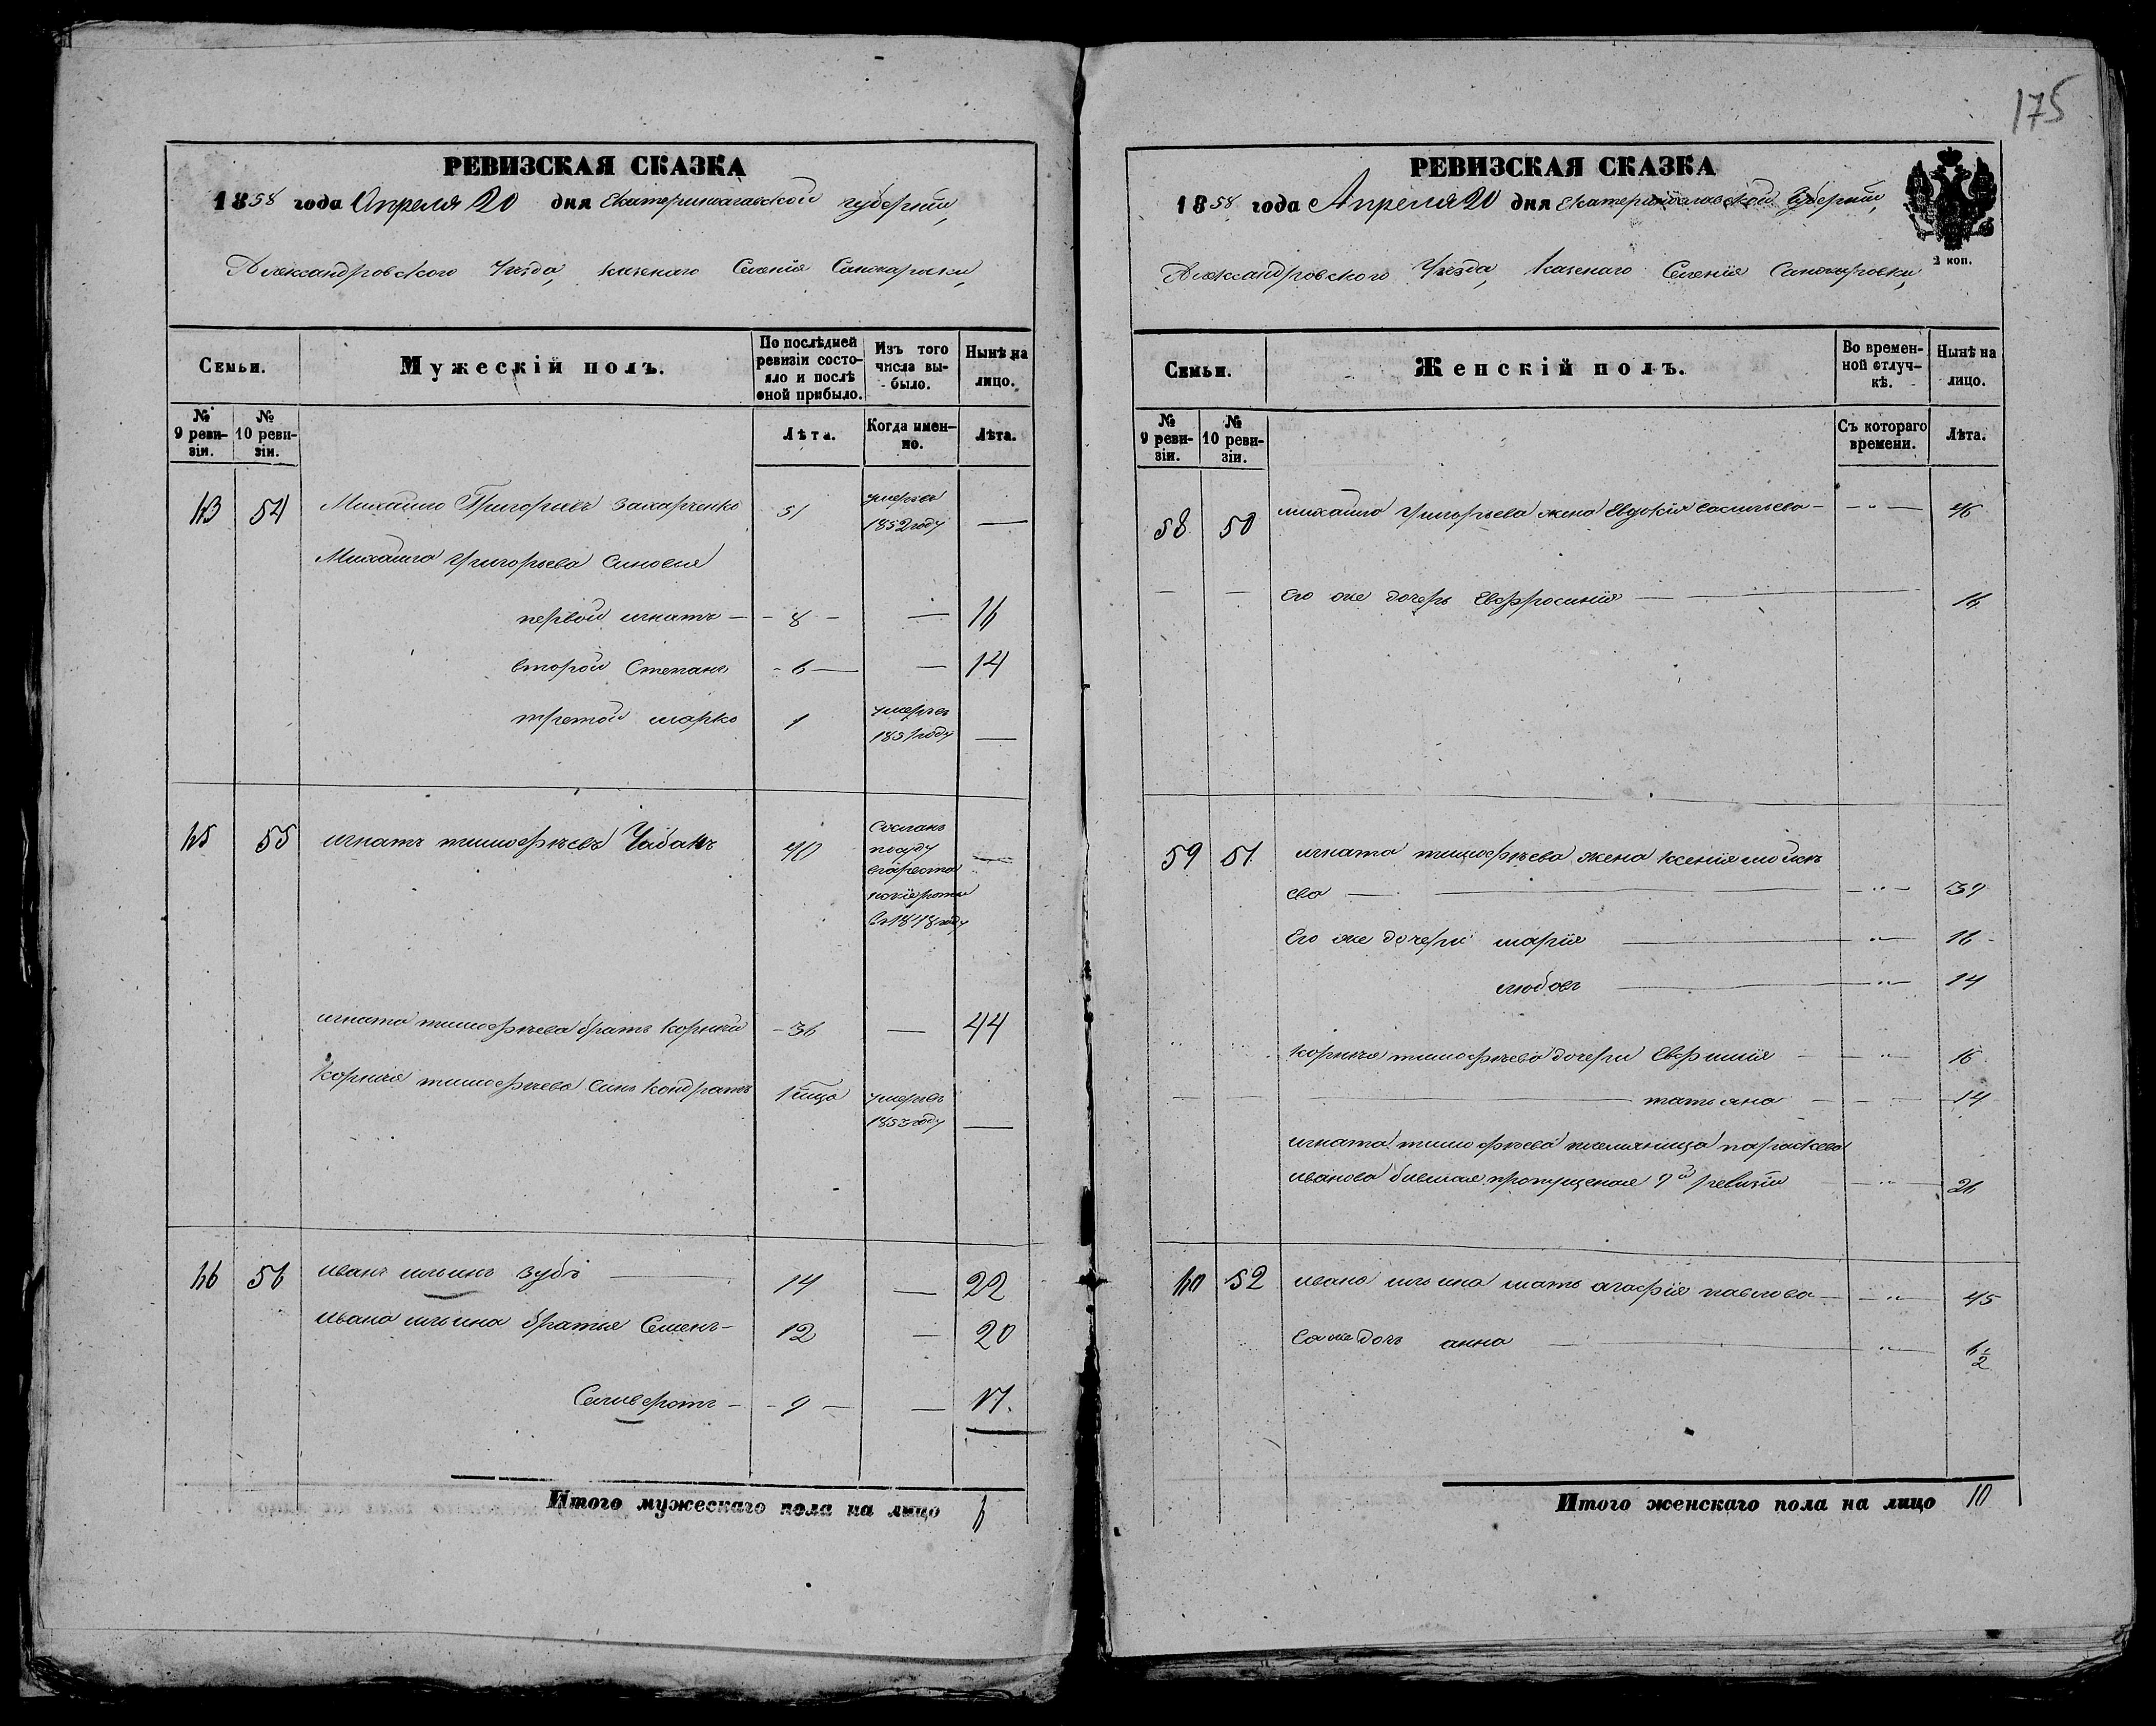 175
РЕВИЗСКАЯ СКАЗКА
1858 года Апреля 20 дня Екатеринославской губернии,
Александровского Уезда, казенаго Селения
Семьи.
Мужескій полъ.
По послѣдней ревизіи состояло и послѣ оной прибыло.
Изъ того числа выбыло.
Нынѣ на лицо.
№ 9 ревизіи.
№ 10 ревизіи.
Лѣта.
Когда именно.
Лѣта.
63 54 Михайло Григориевъ Захарченко 51 умерев 1852 году —
Михайла Григорьева Синовия
первой игнатъ — - 8 - — 16
второй Степанъ - 6 — — 14
третой марко 1 умеръ въ 1851 году —
65 55 игнатъ тимофѣевъ Чабанъ 40 Сосланъ по суду въ арестанскіе роты въ 1848 году —
игната тимофѣева братъ корнѣй - 36 — 44
Корнѣя тимофѣева Синъ кондратъ умеръ въ —
66 56 иванъ ильинъ Зубъ — 14 — 22
ивана ильина братья Семенъ - 12 — 20
Селиверстъ - - 9 — — 17.
Итого мужескаго пола на лицо 6
РЕВИЗСКАЯ СКАЗКА
1858 года Апреля 20 дня Екатеринославской Губернии,
2 коп.
Александровского Уезда, казенаго Селения
Семьи.
Женскій полъ.
Во временной отлучкѣ.
Нынѣ на лицо.
№ 9 ревизіи.
№ 10 ревизіи.
Съ котораго времени.
Лѣта.
58 50 михайла григорьева жена Евдокия васильева — — " — 46
— — Его же дочерь Евфросиния — — 16
59 51 игната тимофѣева жена ксения моисѣ
ева — — — " — 39
Его же дочери мария — " — 16 -
любовь — — " — 14
корнѣя тимофѣева дочери Евфимия — — " — 16
— — — татьяна — — — 14
игната тимофѣева племяница параскева
иванова бившая пропущеная 9й ревизии — " — 26
60 52 ивана ильина мать агафия павлова — — " — 45
Ея же дочь анна — — " — 6 1/2
Итого женскаго пола на лицо 10